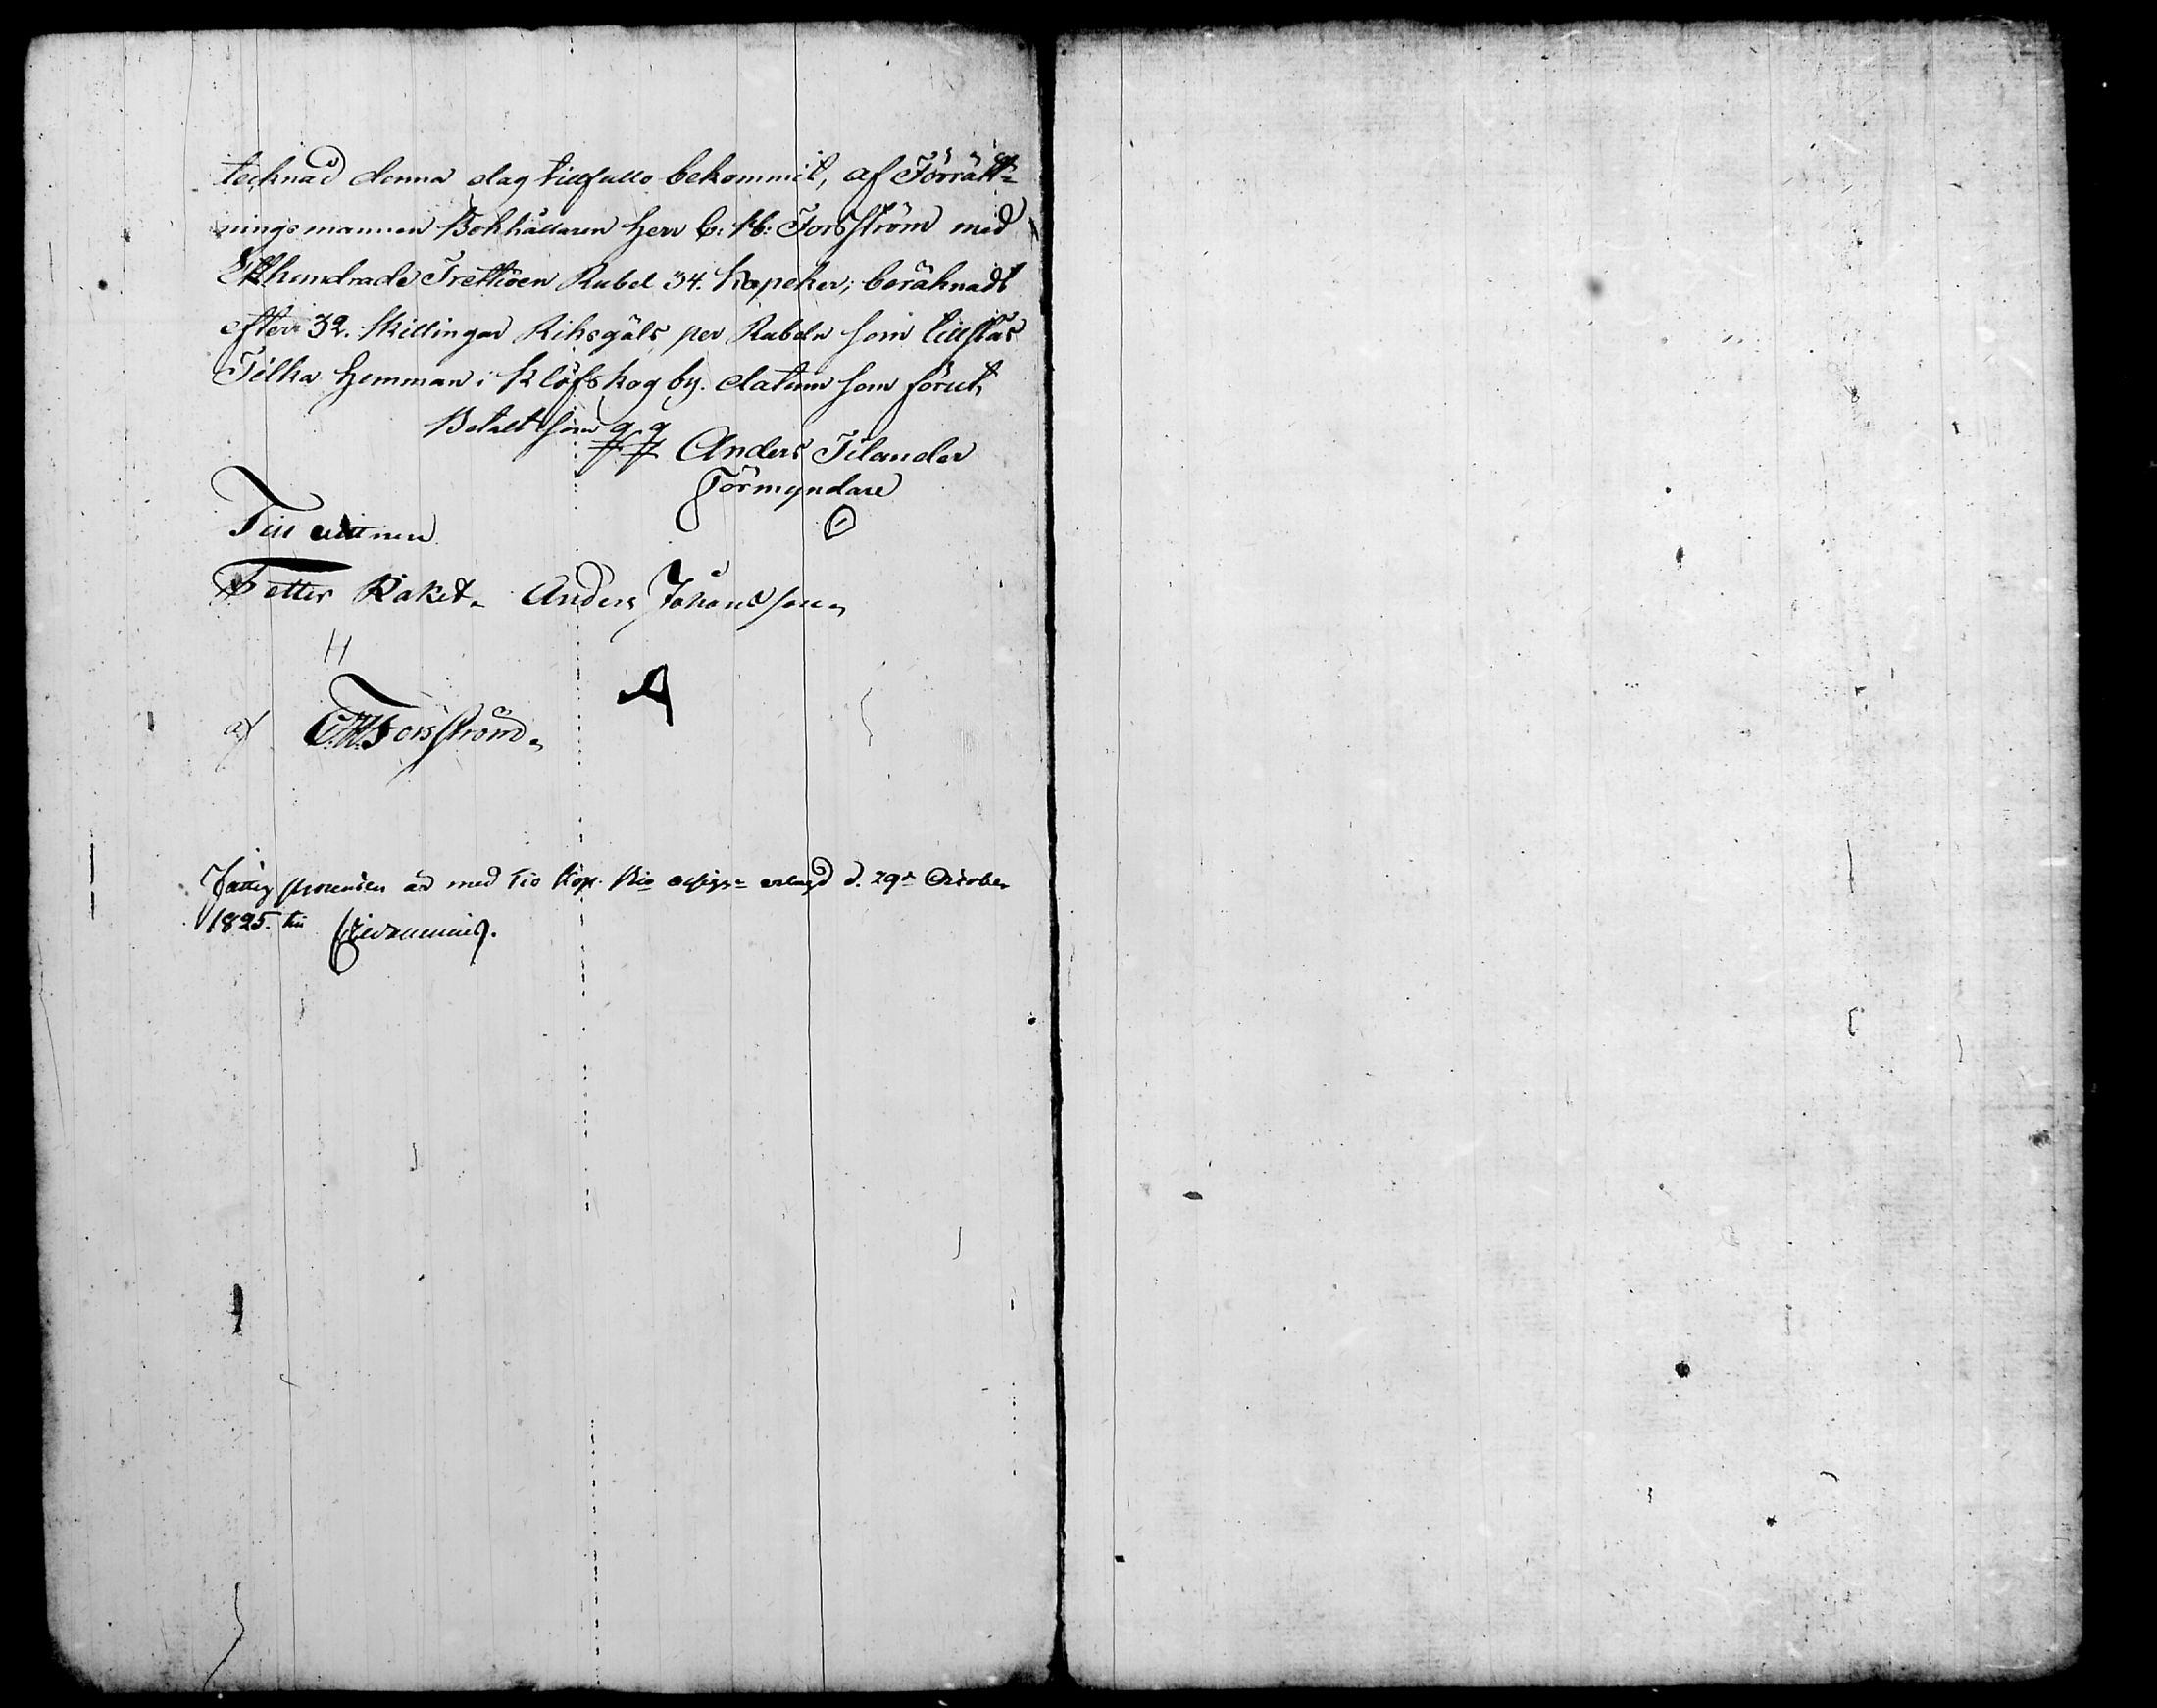 tecknad denna dag tillfullo bekommit, af Förrätt=
ningsmannen Bokhållaren Herr C: W: Forsström med
Etthundrade Trettioen Rubel 34. Kopeker, beräknadt
efter 32. Skillingar Riksgäls per Rubeln som tillstås
Tilka Hemman i Klöfskog by. datum som förut,
Betalt som
Anders Filander
Förmyndare
Till vittnen
Petter Raket. Anders Johansson
H A
af C.W. Forsström.
Fattig procenten är med Tio Kop. Bco assign= erlagd d. 29de October
1825. till